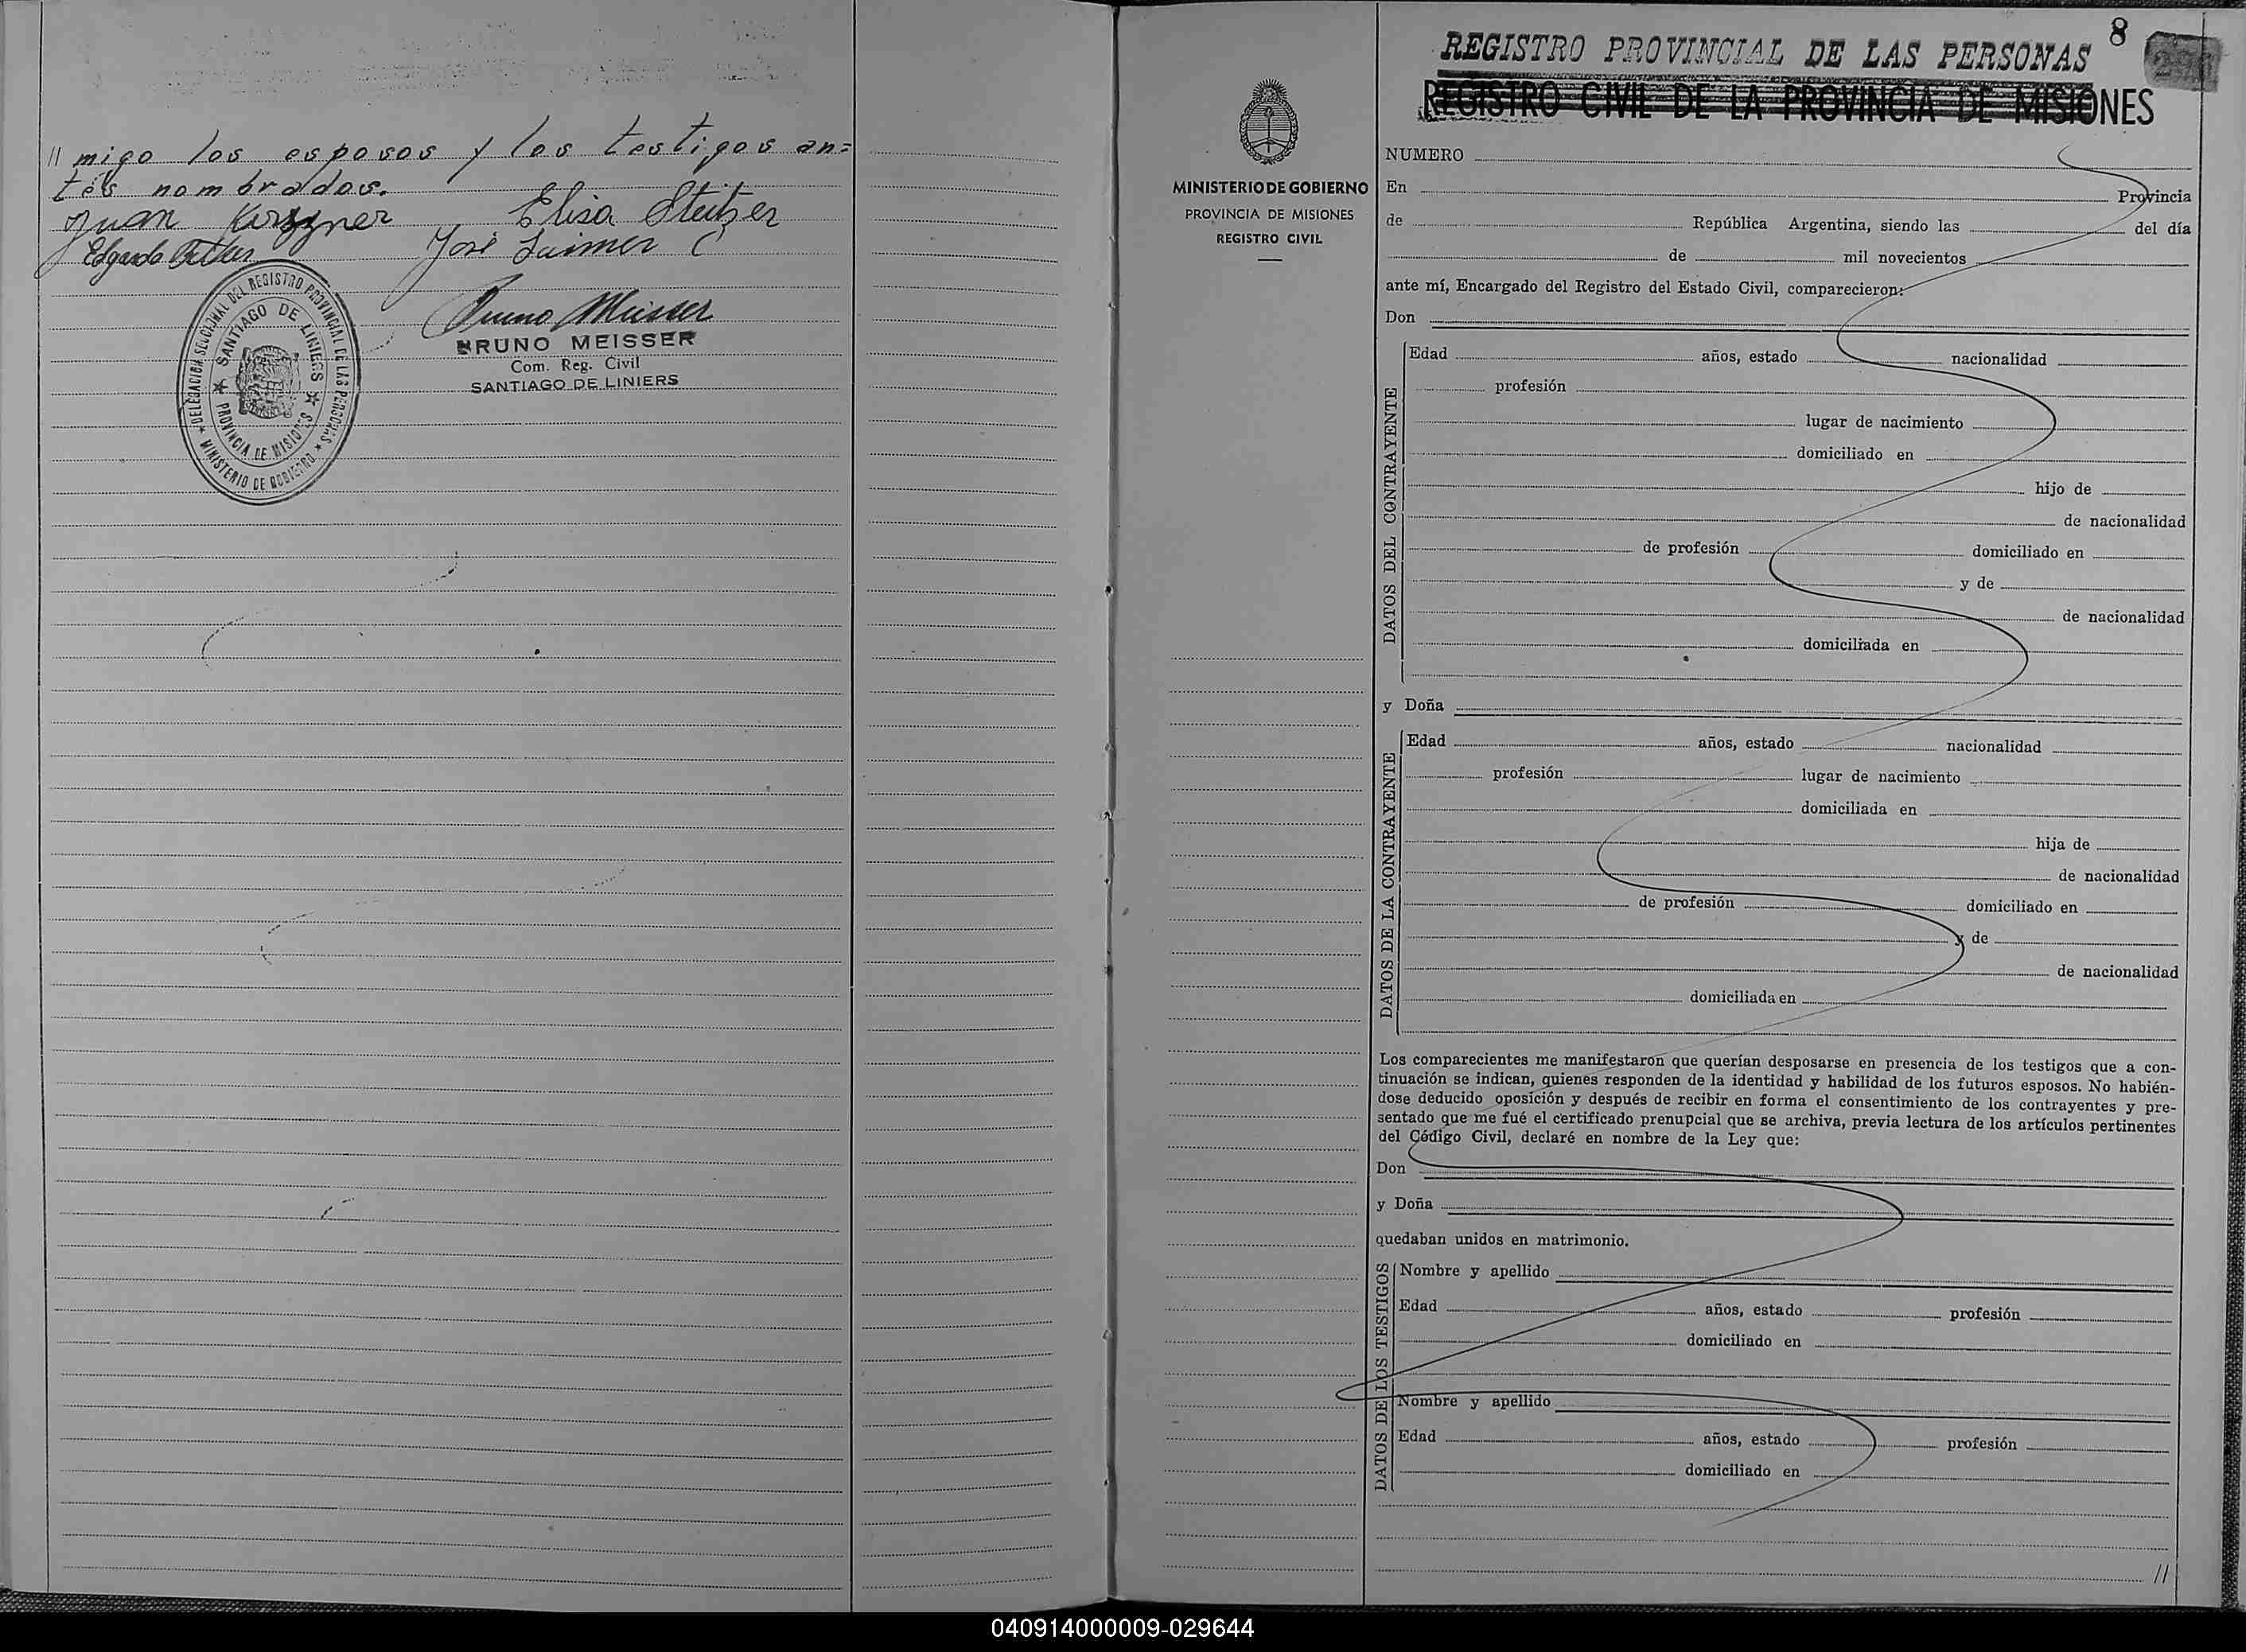 // migo los esposos y los testigos an=
tes nombrados.
Juan Kirszner Elisa Steitzer
Edgardo José
Bruno Meisser
BRUNO MEISSER
Com. Reg. Civil
SANTIAGO DE LINIERS
DELEGACION SECCIONAL DEL REGISTRO PROVINCIAL DE LAS PERSONAS
SANTIAGO DE LINIERS
PROVINCIA DE MISIONES
MINISTERIO DE GOBIERNO
8
REGISTRO PROVINCIAL DE LAS PERSONAS
REGISTRO CIVIL DE LA PROVINCIA DE MISIONES
MINISTERIO DE GOBIERNO
PROVINCIA DE MISIONES
REGISTRO CIVIL
NUMERO
En Provincia
de República Argentina, siendo las del día
de mil novecientos
ante mí, Encargado del Registro del Estado Civil, comparecieron:
Don
DATOS DEL CONTRAYENTE
Edad años, estado nacionalidad
profesión
lugar de nacimiento
domiciliado en
hijo de
de nacionalidad
de profesión domiciliado en
y de
de nacionalidad
domiciliada en
y Doña
DATOS DE LA CONTRAYENTE
Edad años, estado nacionalidad
profesión lugar de nacimiento
domiciliada en
hija de
de nacionalidad
de profesión domiciliado en
y de
de nacionalidad
domiciliada en
Los comparecientes me manifestaron que querían desposarse en presencia de los testigos que a con-
tinuación se indican, quienes responden de la identidad y habilidad de los futuros esposos. No habién-
dose deducido oposición y después de recibir en forma el consentimiento de los contrayentes y pre-
sentado que me fué el certificado prenupcial que se archiva, previa lectura de los artículos pertinentes
del Código Civil, declaré en nombre de la Ley que:
Don
y Doña
quedaban unidos en matrimonio.
DATOS DE LOS TESTIGOS
Nombre y apellido
Edad años, estado profesión
domiciliado en
Nombre y apellido
Edad años, estado profesión
domiciliado en
//
040914000009-029644